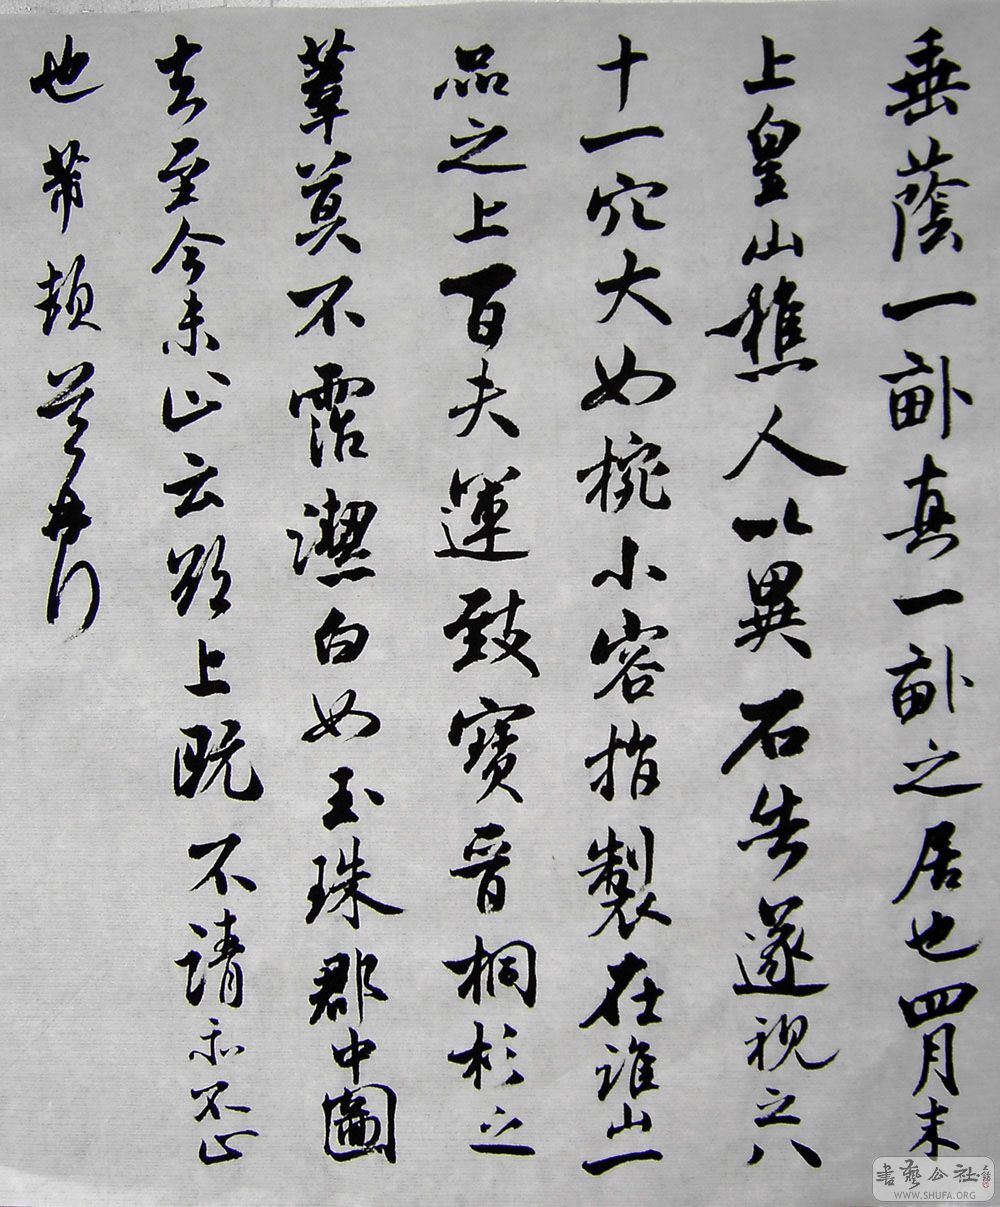 垂蔭一畝真一畝之居也四月末
上皇山樵人以異石告遂視之八
十一穴大如椀小容指製在淮山一
品之上百夫運致寶晉桐杉之
葦莫不霑潔白如玉珠郡中圖
去至今未止云欲上既不請亦不止
也芾頓首再拜
書藝公社
WWW.SHUFA.ORG